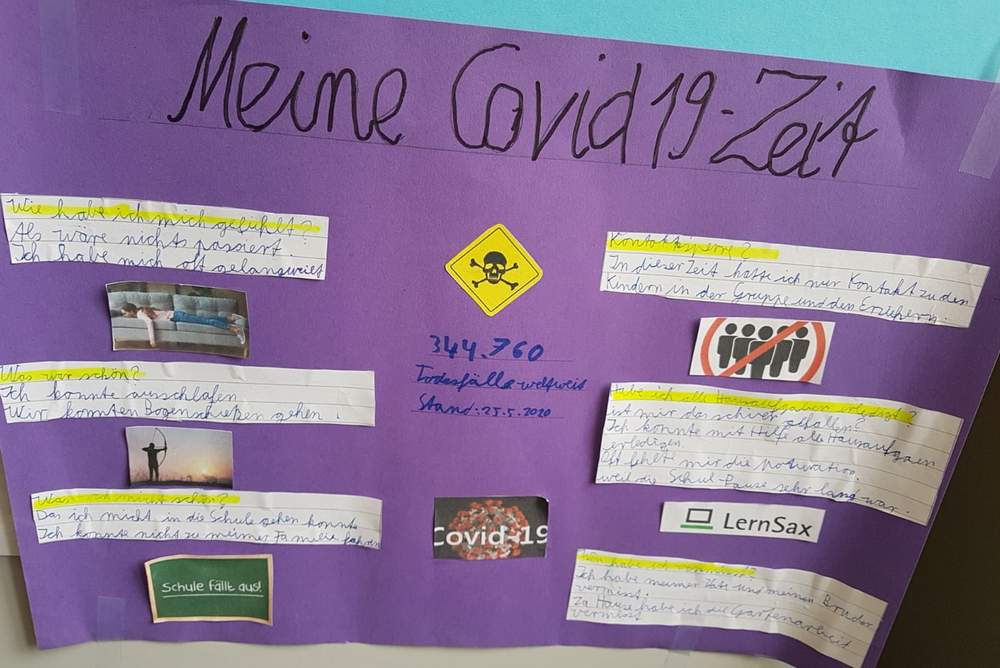 Meine Covid 19-Zeit
Wie habe ich mich gefühlt?
Als wäre nichts passiert.
Ich habe mich oft gelangweilt
Was war schön?
Ich konnte ausschlafen
Wir konnten Bogenschießen gehen.
Was nicht schön?
Das ich nicht in die Schule gehen konnte
Ich konnte nicht zu meiner Familie fahren
Schule fällt aus!
344.760
Todesfälle weltweit
Stand: 25.5.2020
Covid-19
Kontaktsperre?
In dieser Zeit hatte ich nur Kontakt zu den
Kindern in der Gruppe und den Erziehern.
Habe ich alle Hausaufgaben erledigt?
ist mir das schwer gefallen?
Ich konnte mit Hilfe alle Hausaufgaen
erledigen
Oft fehlte mir die Motivation,
weil die Schul-Pause sehr lang war.
LernSax
habe ich vermisst?
Ich habe meiner und meinen Bruder
vermisst.
Zu Hause habe ich die Gartenarbeit
vermisst